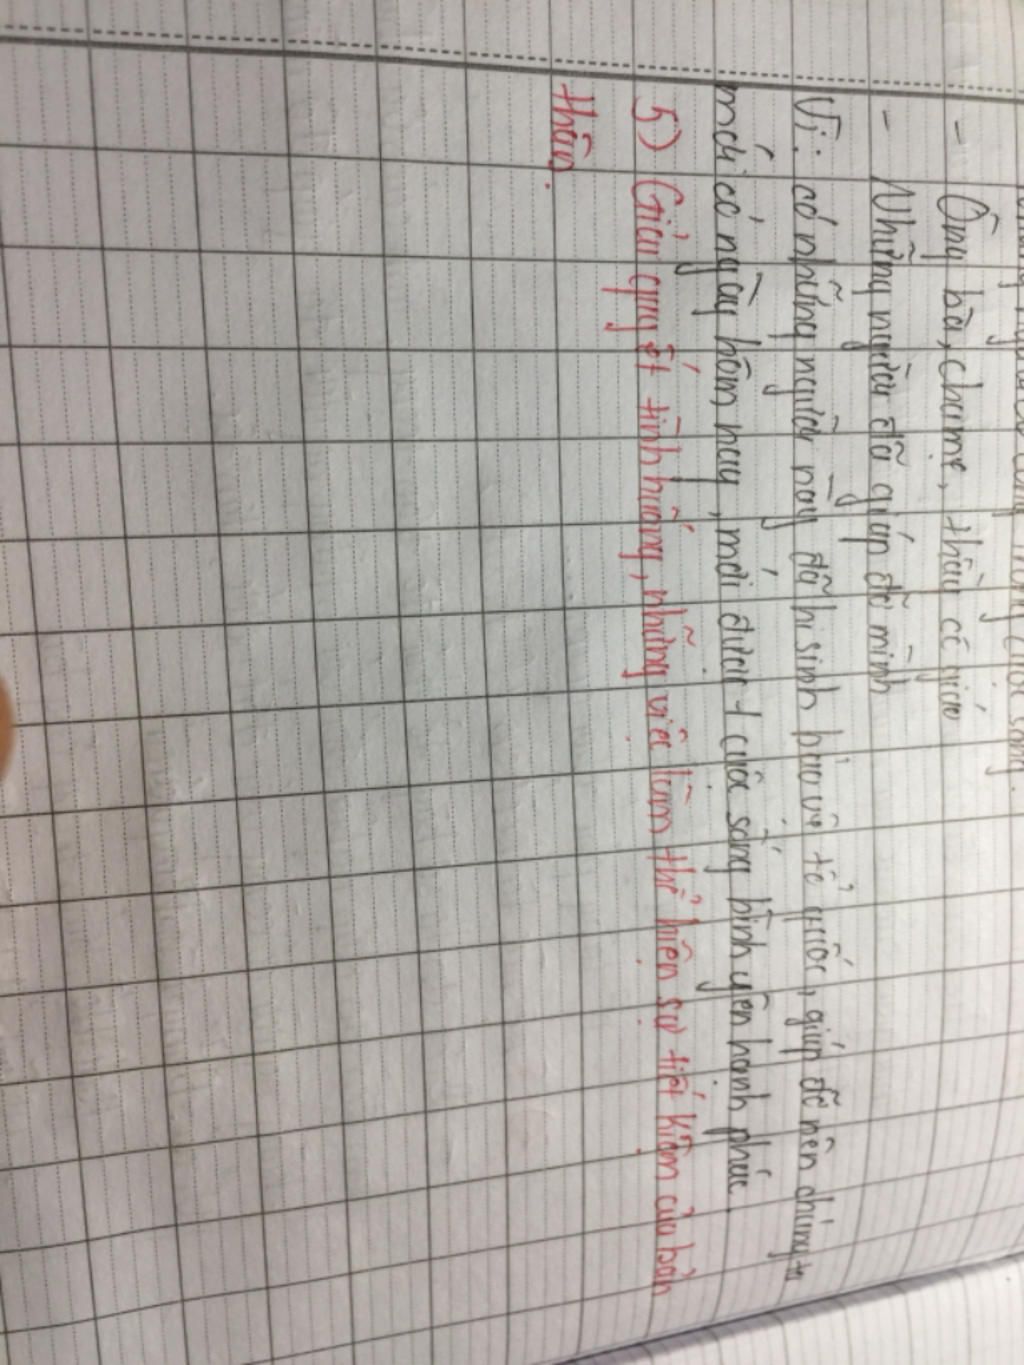 - Ông bà, cha mẹ, thầy cô giáo
- Những người đã giúp đỡ mình
Vì: có những người này đã hi sinh bảo vệ tổ quốc, giúp đỡ nên chúng ta
mới có ngày hôm nay, mới được 1 cuộc sống bình yên hạnh phúc.
5) Giải quyết tình huống, những việc làm thể hiện sự tiết kiệm của bản
thân.